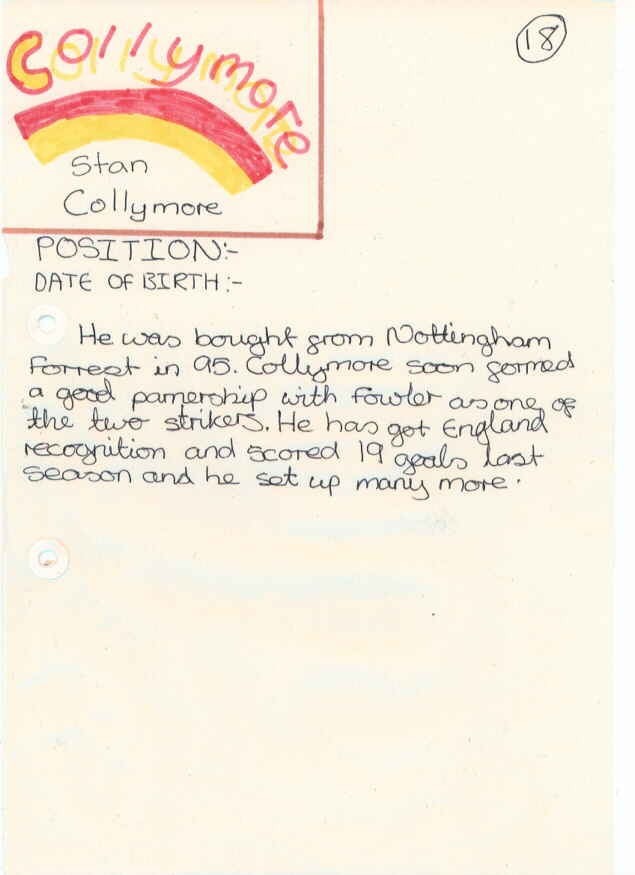 18
Collymore
Stan
Collymore
POSITION:-
DATE OF BIRTH:-
He was bought from Nottingham
Forrest in 95. Collymore soon formed
a good parnership with Fowler as one of
the two strikers. He has got England
recognition and scored 19 goals last
season and he set up many more.